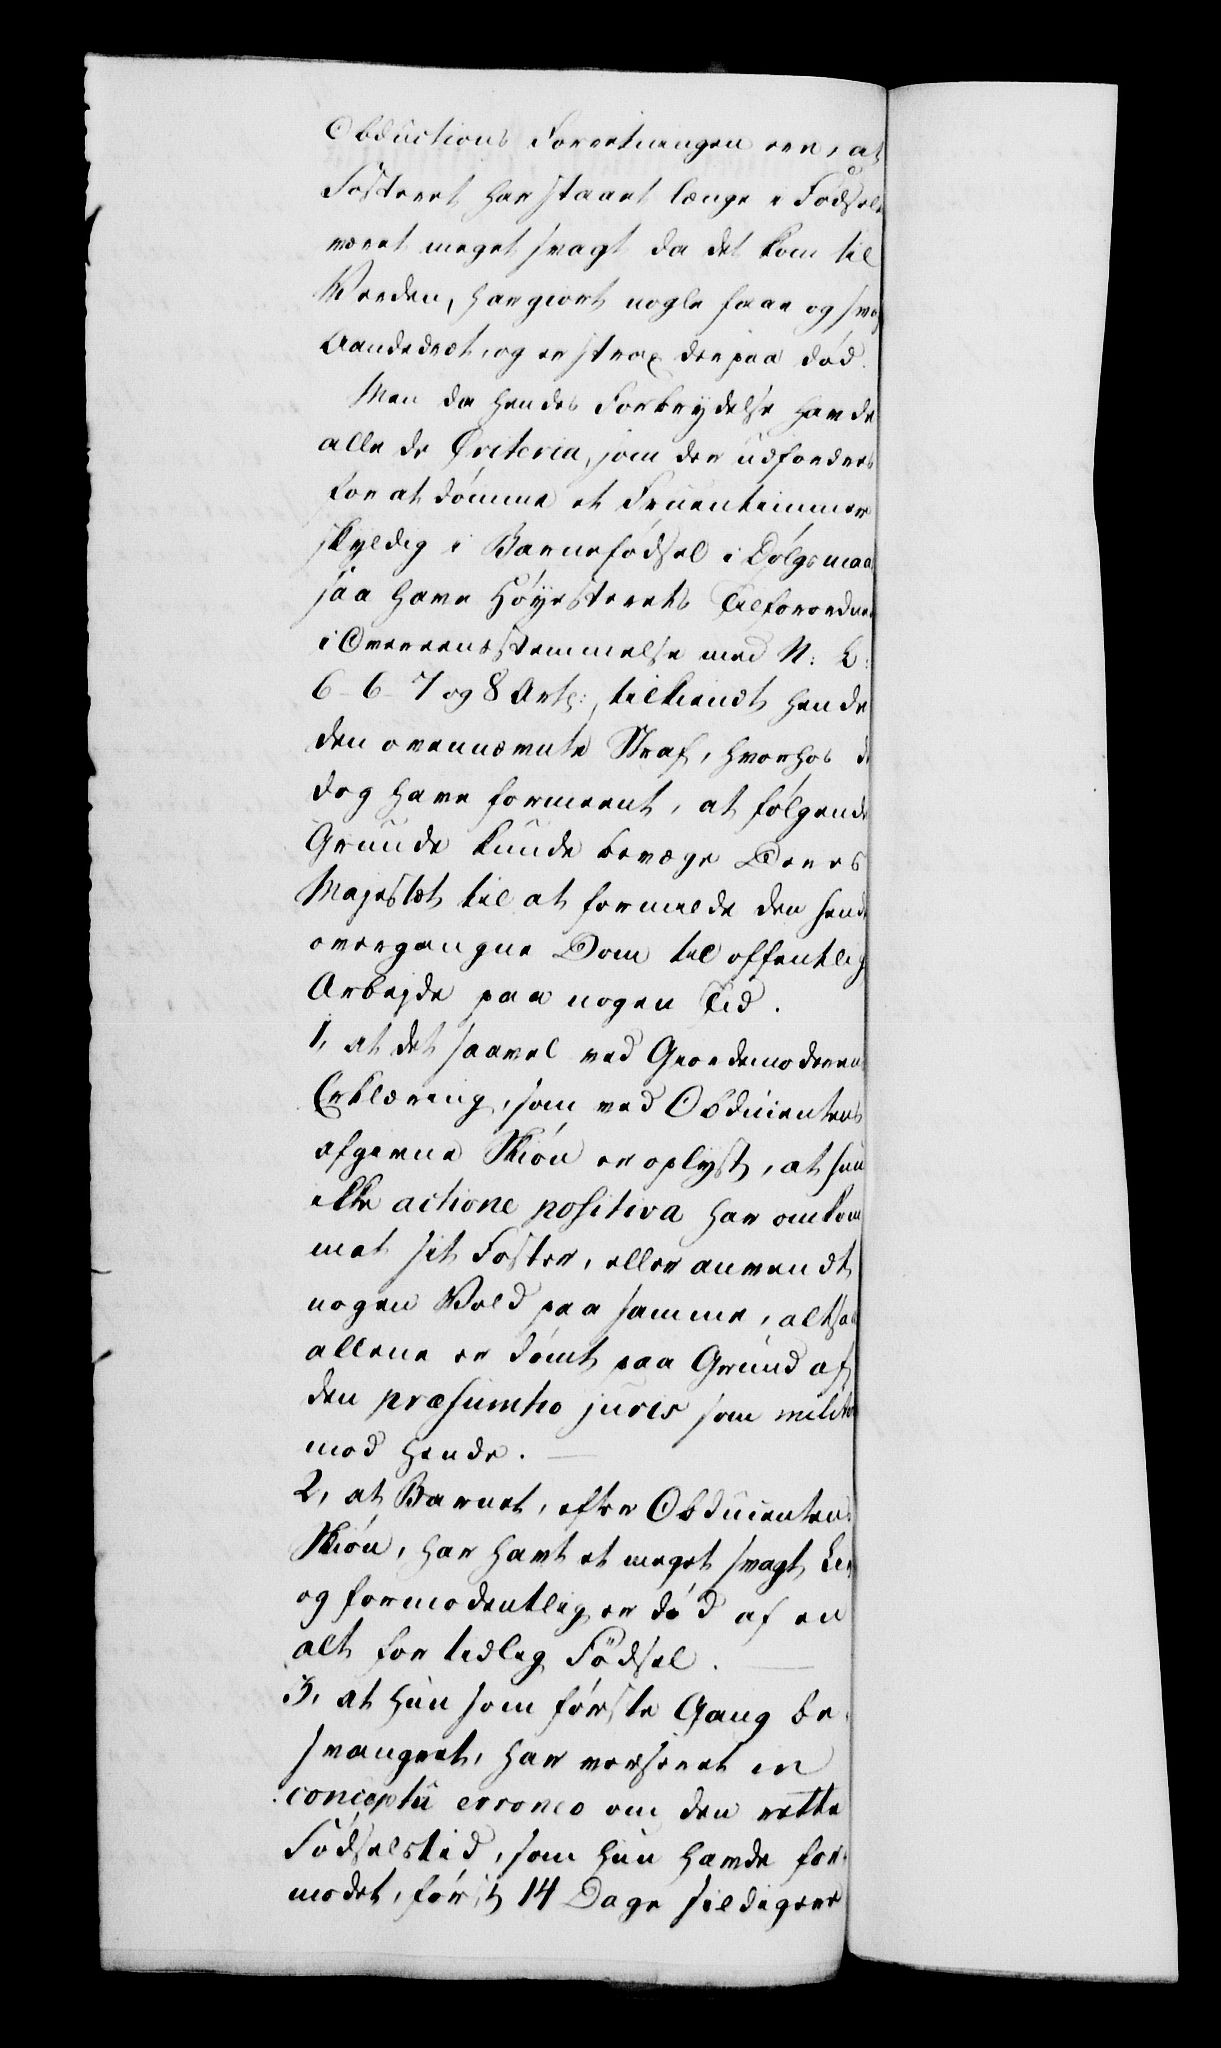 Obductions Forretningen eer, at
Fosteret har staaet længe i Fødsele
været meget svagt da det kom til
Verden, har giort nogle faae og svag
Aandedræt, og er strax derpaa død.
Men da hendes Forbrydelse havde
alle de Criteria, som der udfordres
for at dømme et Fruentimmer
skyldig i Barnefødsel i Dølgsmaal
saa have Høyesterets Tilforordne
i Overeensstemmelse med N: L:
6–6–7 og 8 Artl: tilkiendt hende
den ovennævnte Straf, hvorhos de
dog have formeent, at følgende
Grunde kunde bevæge Deres
Majestæt til at formilde den hende
overgangne Dom til offentlig
Arbejde paa nogen Tid.
1, at det saavel ved Giordemoderens
Erklæring, som ved Obducentens
afgevne Skiøn er oplyst, at hun
ikke actione positiva har omkom
met sit Foster, eller anvendt
nogen Vold paa samme, altsaa
allene er dømt paa Grund af
den præsumtio juris som milite
mod hende. —
2, at Barnet, efter Obducentens
Skiøn, har havt et meget svagt Liv
og formodentlig er død af en
alt for tidlig Fødsel. —
3, at hun som første Gang be-
svangret, har verseret in
conceptu erroneo om den rette
Fødselstid, som hun havde for-
modet, først 14 Dage sildigere